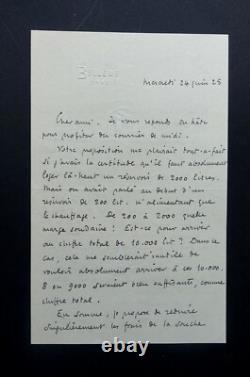 BELLEME
Mercredi 24 juin 25
Cher ami. Je vous réponds en hâte
pour profiter du courrier de midi.
Votre proposition me plairait tout-à-fait
si j'avais la certitude qu'il faut absolument
loger là-haut un réservoir de 2000 litres.
Mais on avait parlé au début d'un
réservoir de 200 lit. n'alimentant que
le chauffage. De 200 à 2000 quelle
marge soudaine ! Est-ce pour arriver
au chiffre total de 10.000 lit ? Dans ce
cas, cela me semblerait inutile de
vouloir absolument arriver à ces 10.000.
8 ou 9000 seraient bien suffisants, comme
chiffre total.
En somme, je propose de réduire
singulièrement les frais de la souche